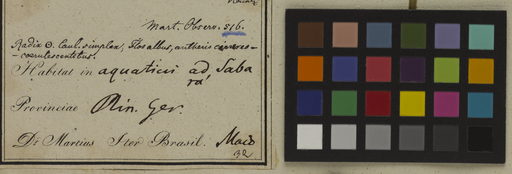 Mart. Observ. 516.
Radix ʘ. Caul. simplex, Flos albus, antheris
coerulescentibus.
Habitat in aquaticis ad Saba
ra
Provinciae Min. Ger.
Dr Martius Iter Brasil. Maio